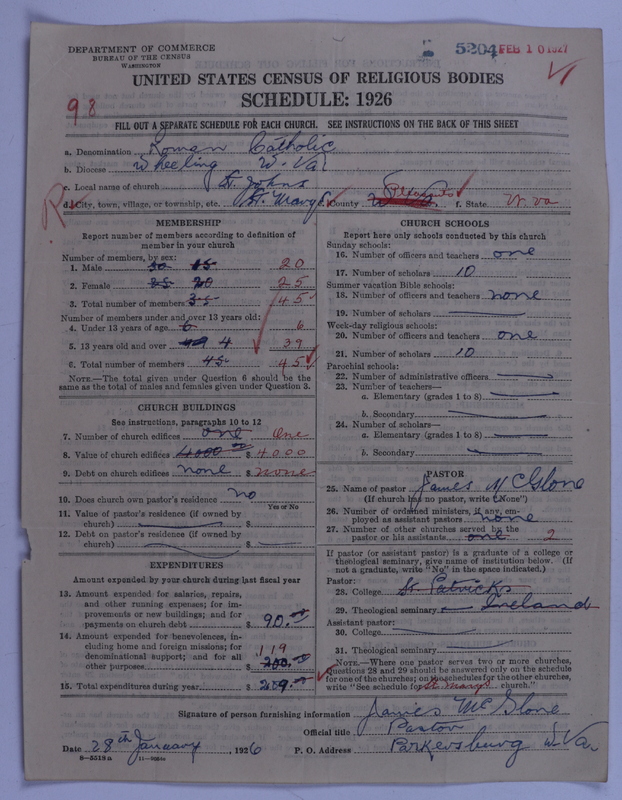 DEPARTMENT OF COMMERCE
BUREAU OF THE CENSUS
WASHINGTON
5204 FEB 10 1927
UNITED STATES CENSUS OF RELIGIOUS BODIES
SCHEDULE: 1926
98
FILL OUT A SEPARATE SCHEDULE FOR EACH CHURCH. SEE INSTRUCTIONS ON THE BACK OF THIS SHEET
a. Denomination Roman Catholic
b. Diocese Wheeling W. Va
c. Local name of church St. Johns
d. City, town, village, or township, etc. St. Marys e. County Pleasants f. State W. Va
MEMBERSHIP
Report number of members according to definition of
member in your church
Number of members, by sex:
1. Male 30 15 20
2. Female 25 20 25
3. Total number of members 35 45
Number of members under and over 13 years old:
4. Under 13 years of age 6 6
5. 13 years old and over 4 39
6. Total number of members 45 45
NOTE.—The total given under Question 6 should be the
same as the total of males and females given under Question 3.
CHURCH BUILDINGS
See instructions, paragraphs 10 to 12
7. Number of church edifices one One
8. Value of church edifices 4000 00 $ 4000
9. Debt on church edifices none $ none
10. Does church own pastor's residence no
Yes or No
11. Value of pastor's residence (if owned by
church) $
12. Debt on pastor's residence (if owned by
church) $
EXPENDITURES
Amount expended by your church during last fiscal year
13. Amount expended for salaries, repairs,
and other running expenses; for im-
provements or new buildings; and for
payments on church debt $ 90.00
14. Amount expended for benevolences, in-
cluding home and foreign missions; for
denominational support; and for all
other purposes $ 200.00 119
15. Total expenditures during year $ 209.00
CHURCH SCHOOLS
Report here only schools conducted by this church
Sunday schools:
16. Number of officers and teachers one
17. Number of scholars 10
Summer vacation Bible schools:
18. Number of officers and teachers none
19. Number of scholars
Week-day religious schools:
20. Number of officers and teachers one
21. Number of scholars 10
Parochial schools:
22. Number of administrative officers
23. Number of teachers—
a. Elementary (grades 1 to 8)
b. Secondary
24. Number of scholars—
a. Elementary (grades 1 to 8)
b. Secondary
PASTOR
25. Name of pastor James McGlone
(If church has no pastor, write "None")
26. Number of ordained ministers, if any, em-
ployed as assistant pastors none
27. Number of other churches served by the
pastor or his assistants one 2
If pastor (or assistant pastor) is a graduate of a college or
theological seminary, give name of institution below. (If
not a graduate, write "No" in the space indicated.)
Pastor:
28. College St. Patricks
29. Theological seminary Ireland
Assistant pastor:
30. College
31. Theological seminary
NOTE.—Where one pastor serves two or more churches,
Questions 28 and 29 should be answered only on the schedule
for one of the churches; on the schedules for the other churches,
write "See schedule for St. Marys church."
Signature of person furnishing information James McGlone
Official title Pastor
Date 28th January, 1926 P. O. Address Parkersburg W Va
8—5518a 11—9664a